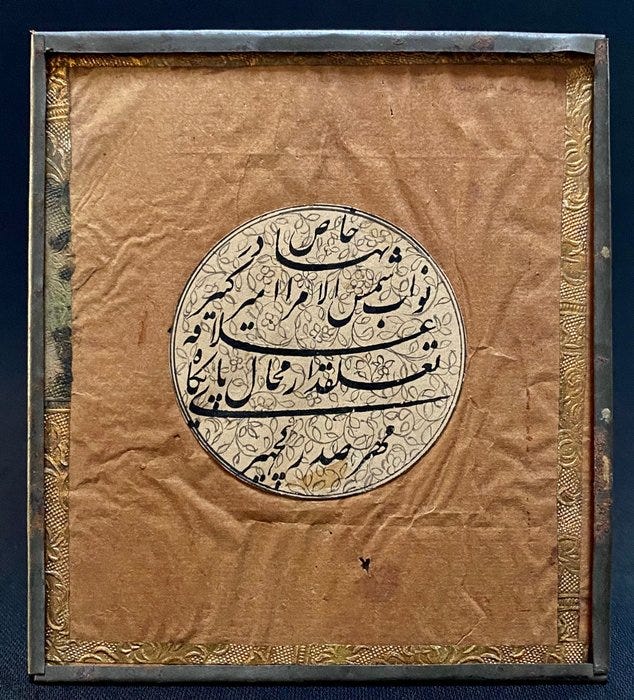 مهر صدر کچهیری
تعلقدار محال پایگاه
علاقه
نواب شمس الامرا امیر کبیر
بهادر
خاص